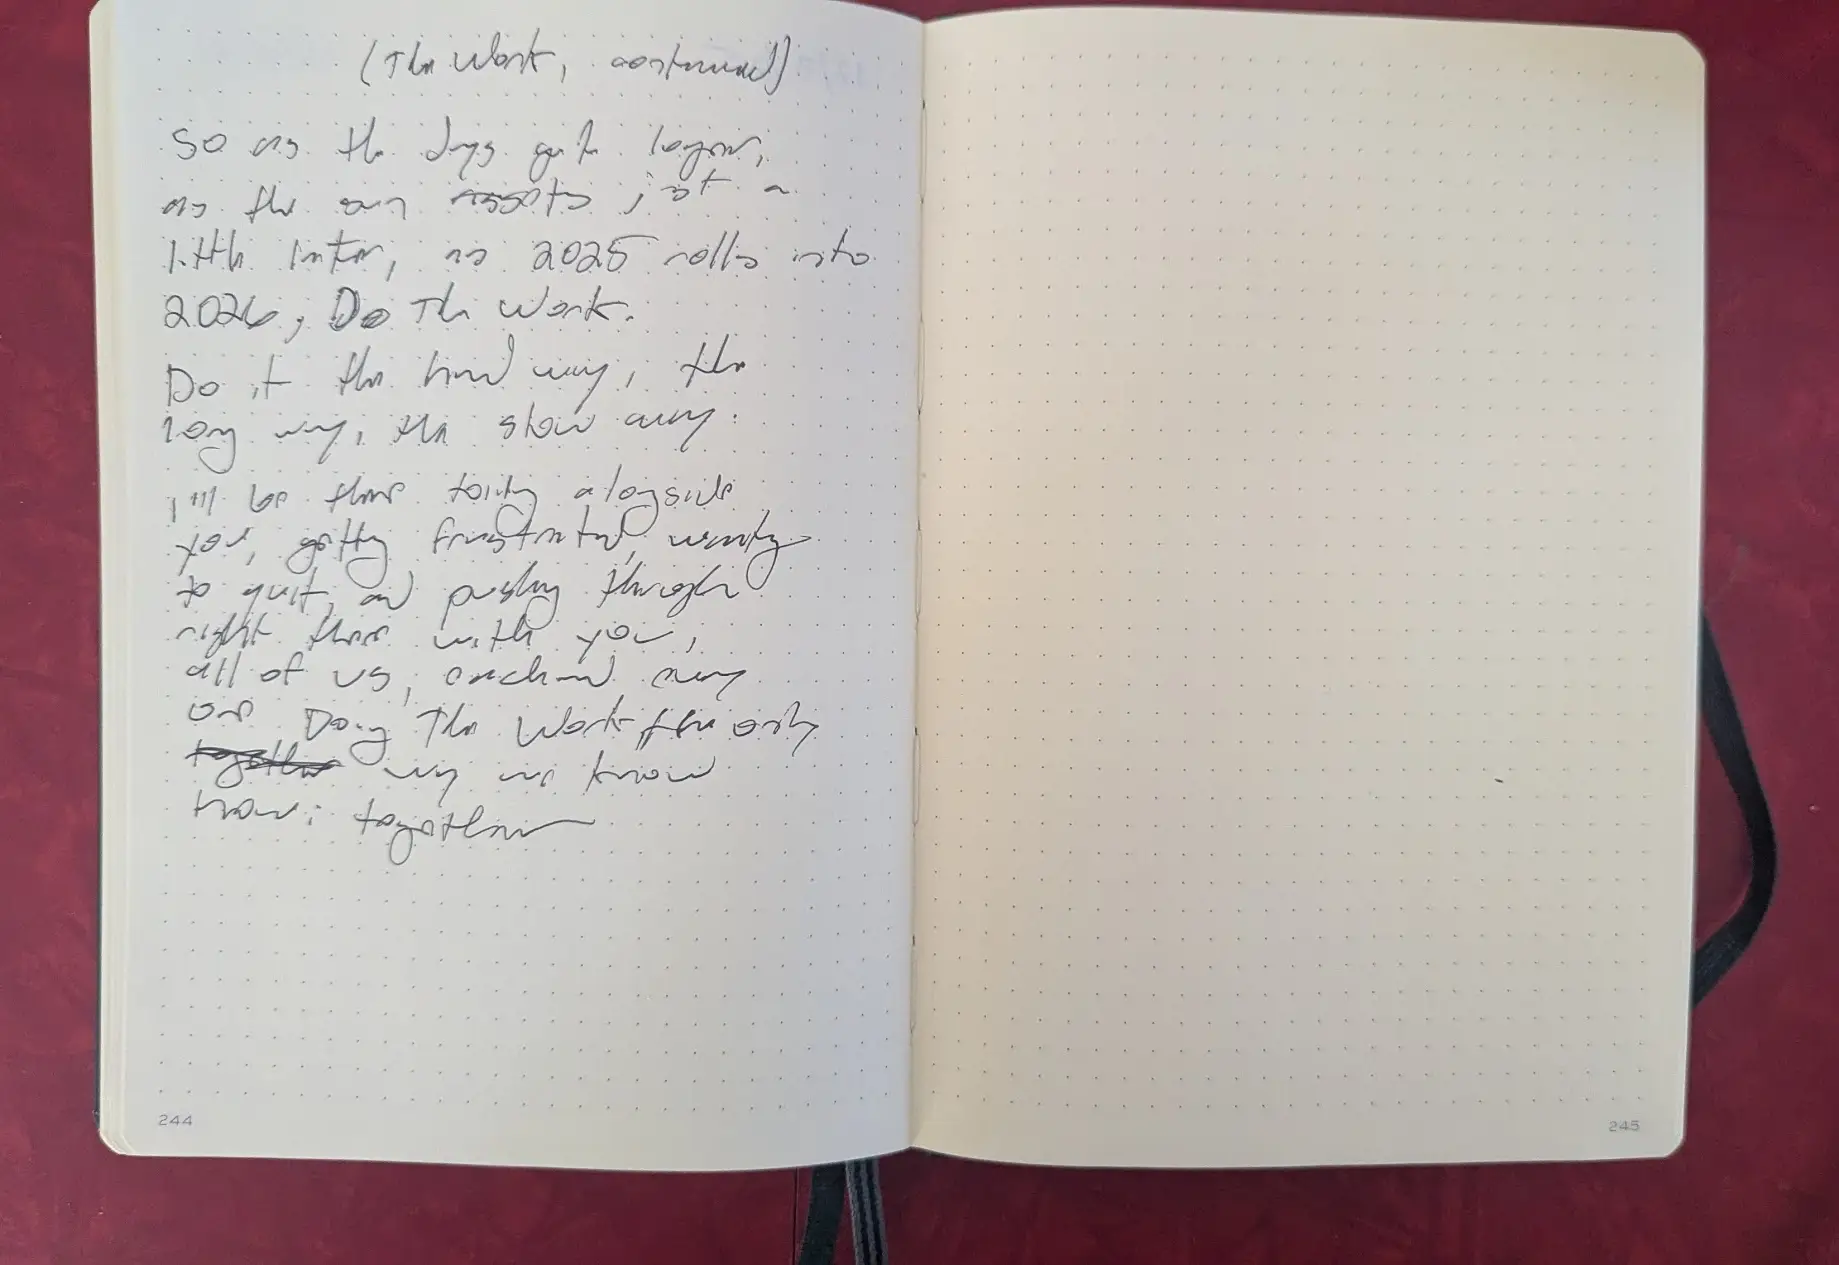 (The Work, continued)
So as the days get longer,
as the sun sets just a
little later, as 2025 rolls into
2026, Do The Work.
Do it the hard way, the
long way, the slow way.
I'll be there toiling alongside
you, getting frustrated, wanting
to quit, and pushing through
right there with you,
all of us, each and every
one Doing The Work the only
together way we know
how: together
244
245